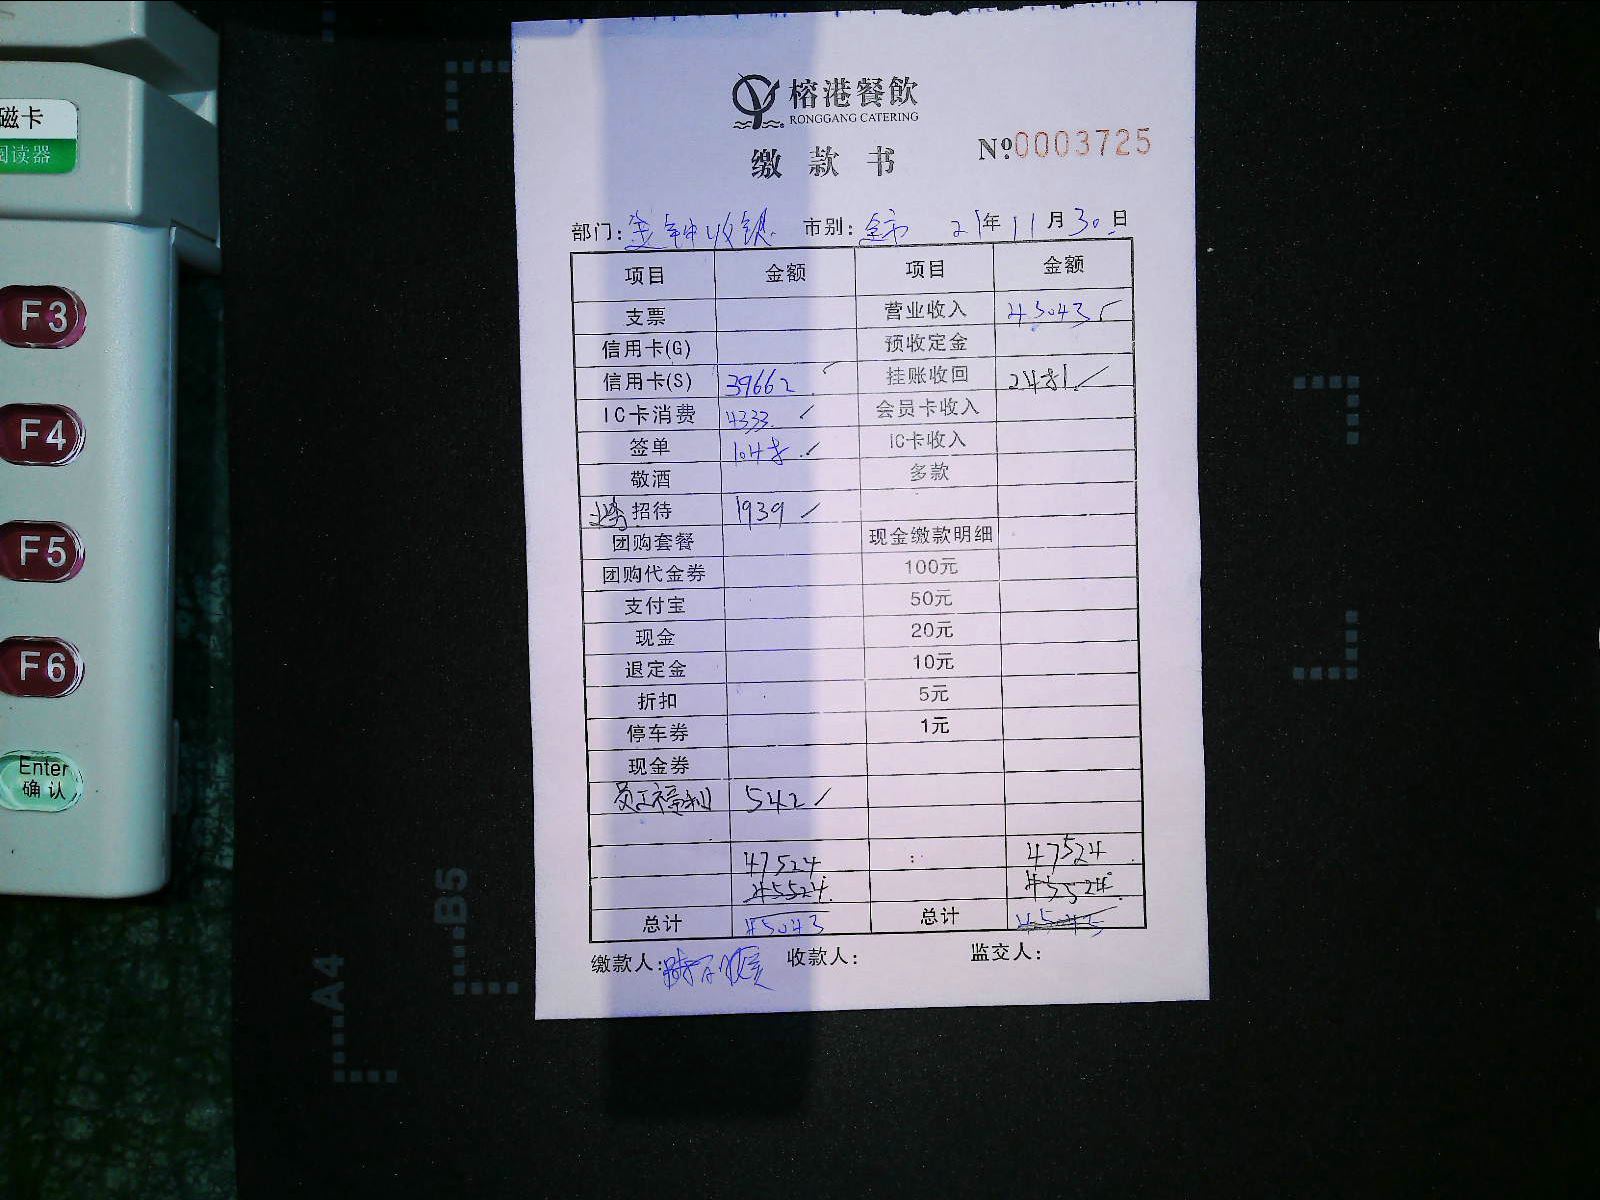 磁卡
阅读器
F3
F4
F5
F6
Enter
确认
A4
B5
榕港餐飲
RONGGANG CATERING
缴款书
№0003725
部门: 收银 市别: 全市 21年11月30日
项目 金额 项目 金额
支票 营业收入 45043
信用卡(G) 预收定金
信用卡(S) 39662 挂账收回 2481
IC卡消费 4333 会员卡收入
签单 1048 IC卡收入
敬酒 多款
业务招待 1939
团购套餐 现金缴款明细
团购代金券 100元
支付宝 50元
现金 20元
退定金 10元
折扣 5元
停车券 1元
现金券
员工福利 542
47524 47524
45524 45524
总计 45043 总计 45043
缴款人: 收款人: 监交人: